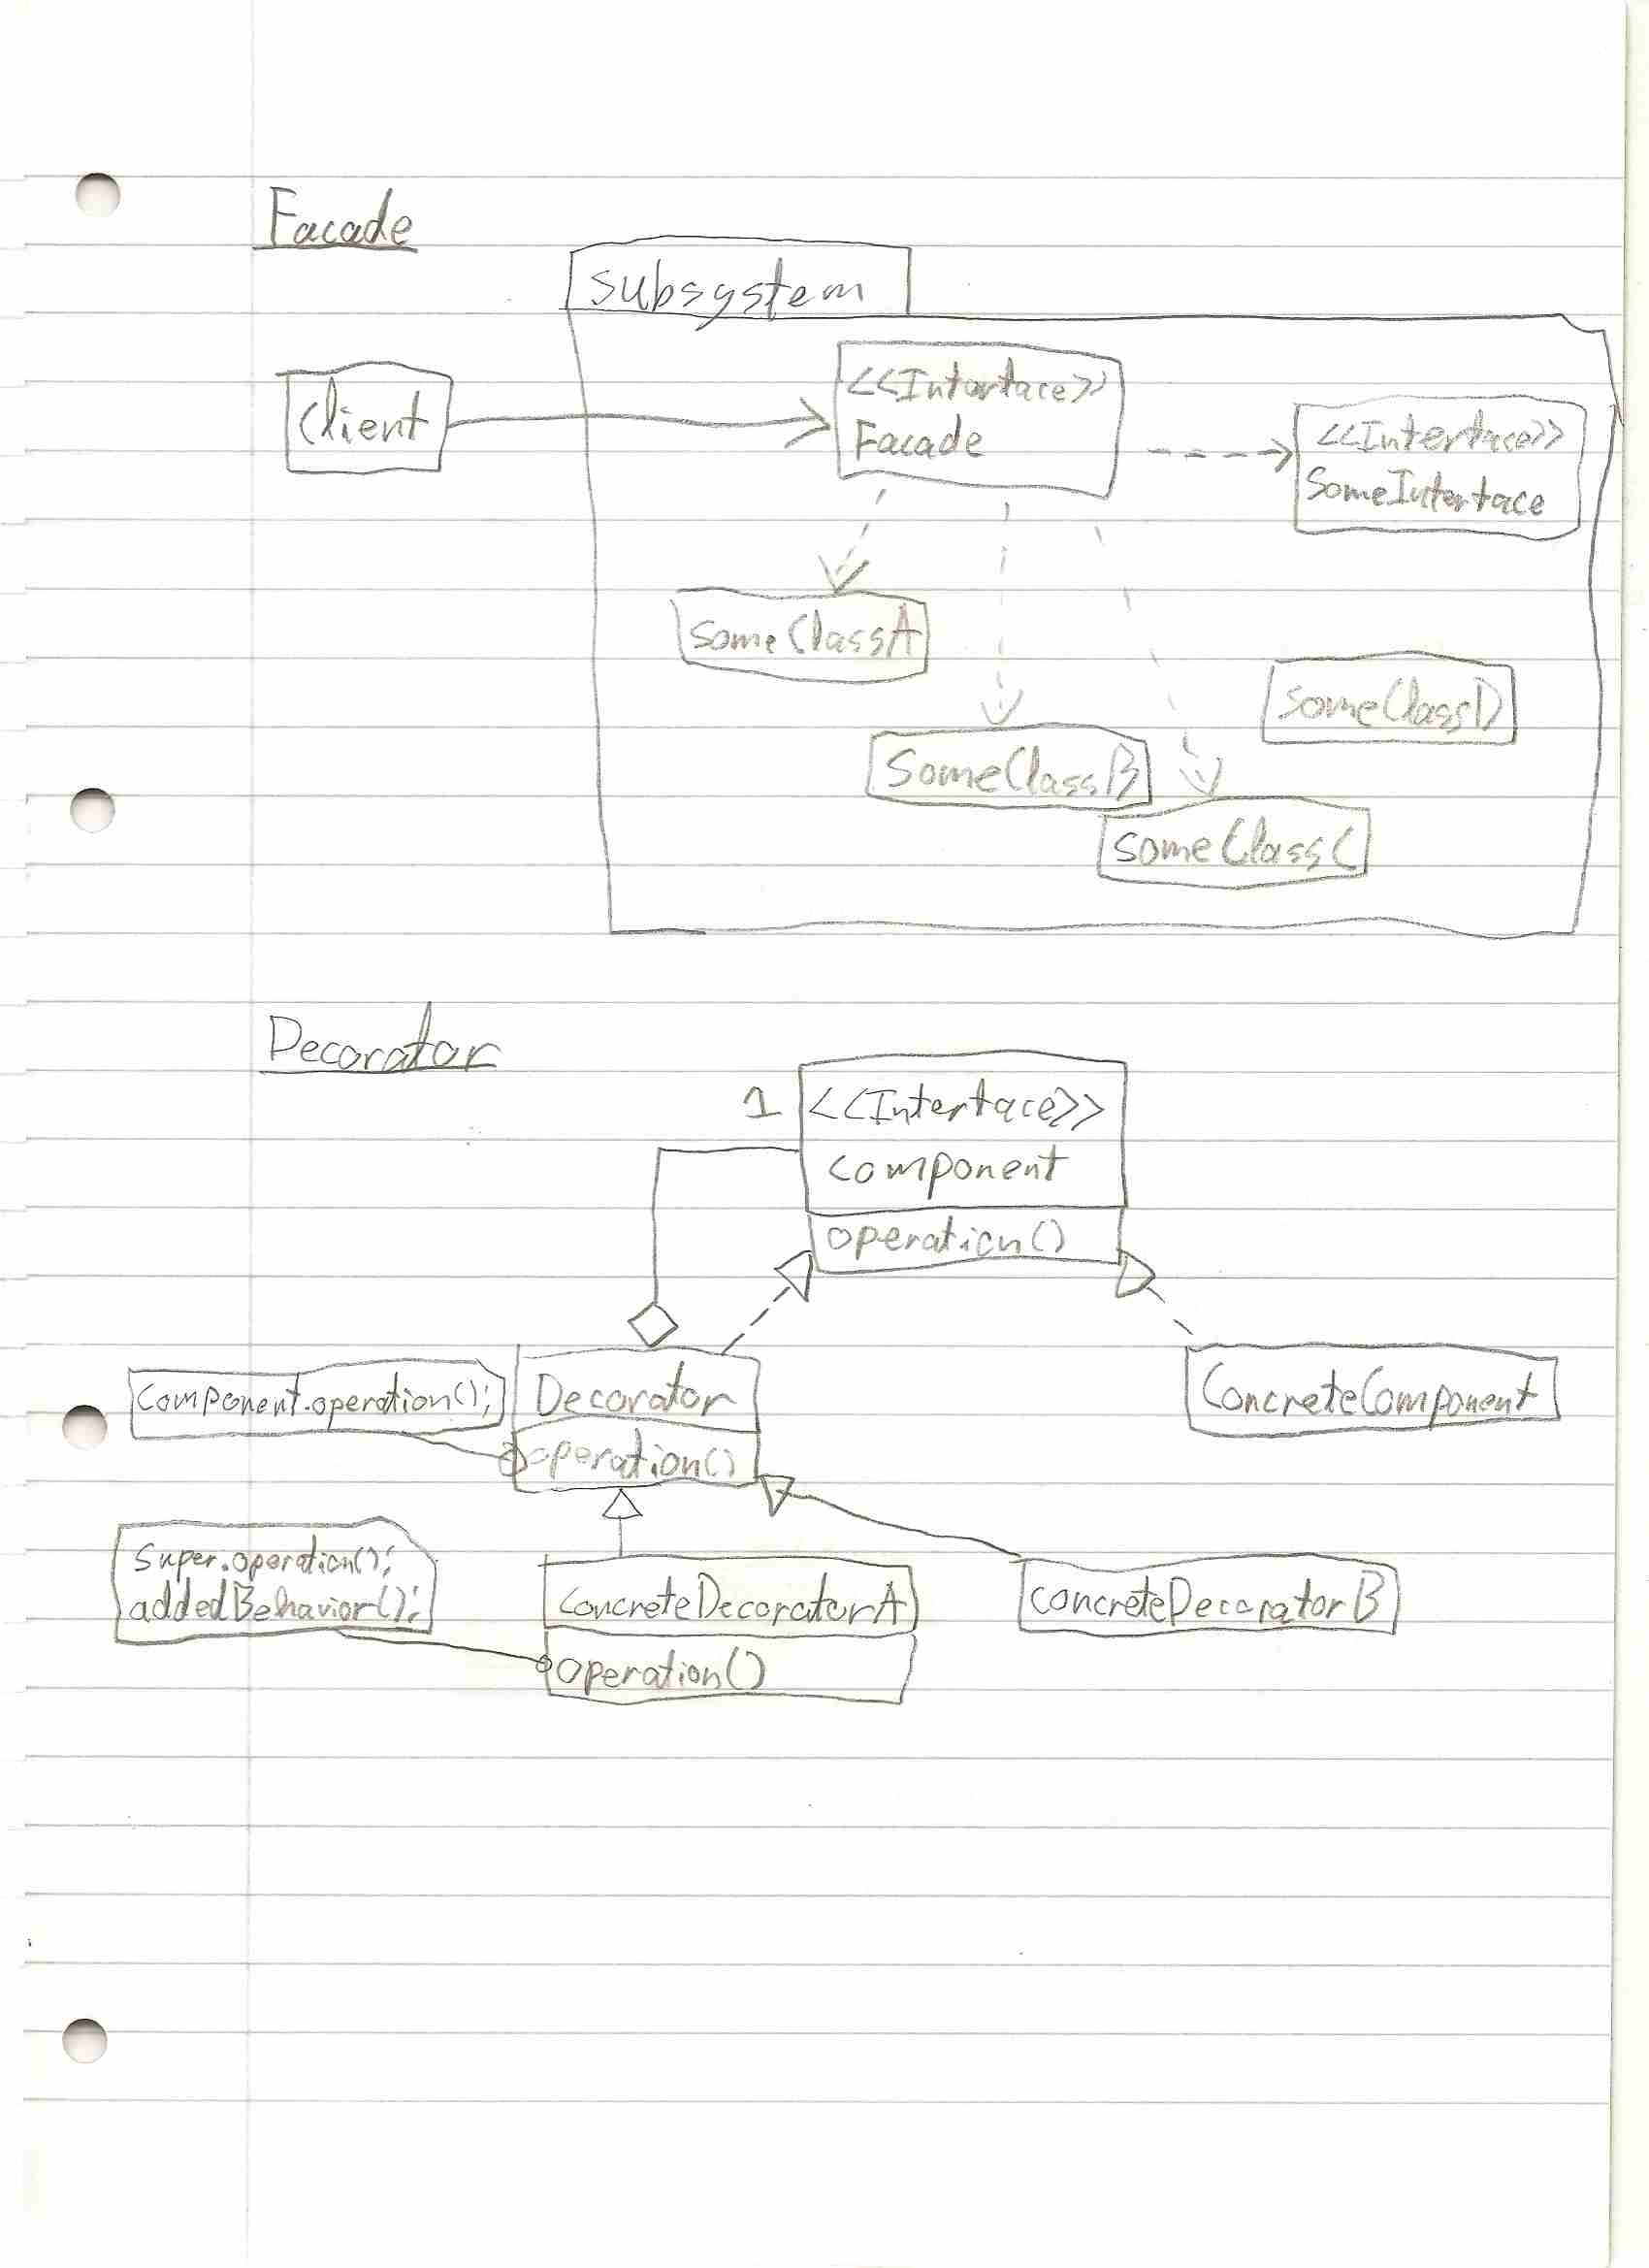 Facade
subsystem
Client
<<Interface>>
Facade
<<Interface>>
SomeInterface
someClassA
someClassD
SomeClassB
someClassC
Decorator
1
<<Interface>>
component
operation()
Component.operation();
Decorator
operation()
ConcreteComponent
super.operation();
addedBehavior();
ConcreteDecoratorA
operation()
concreteDecoratorB